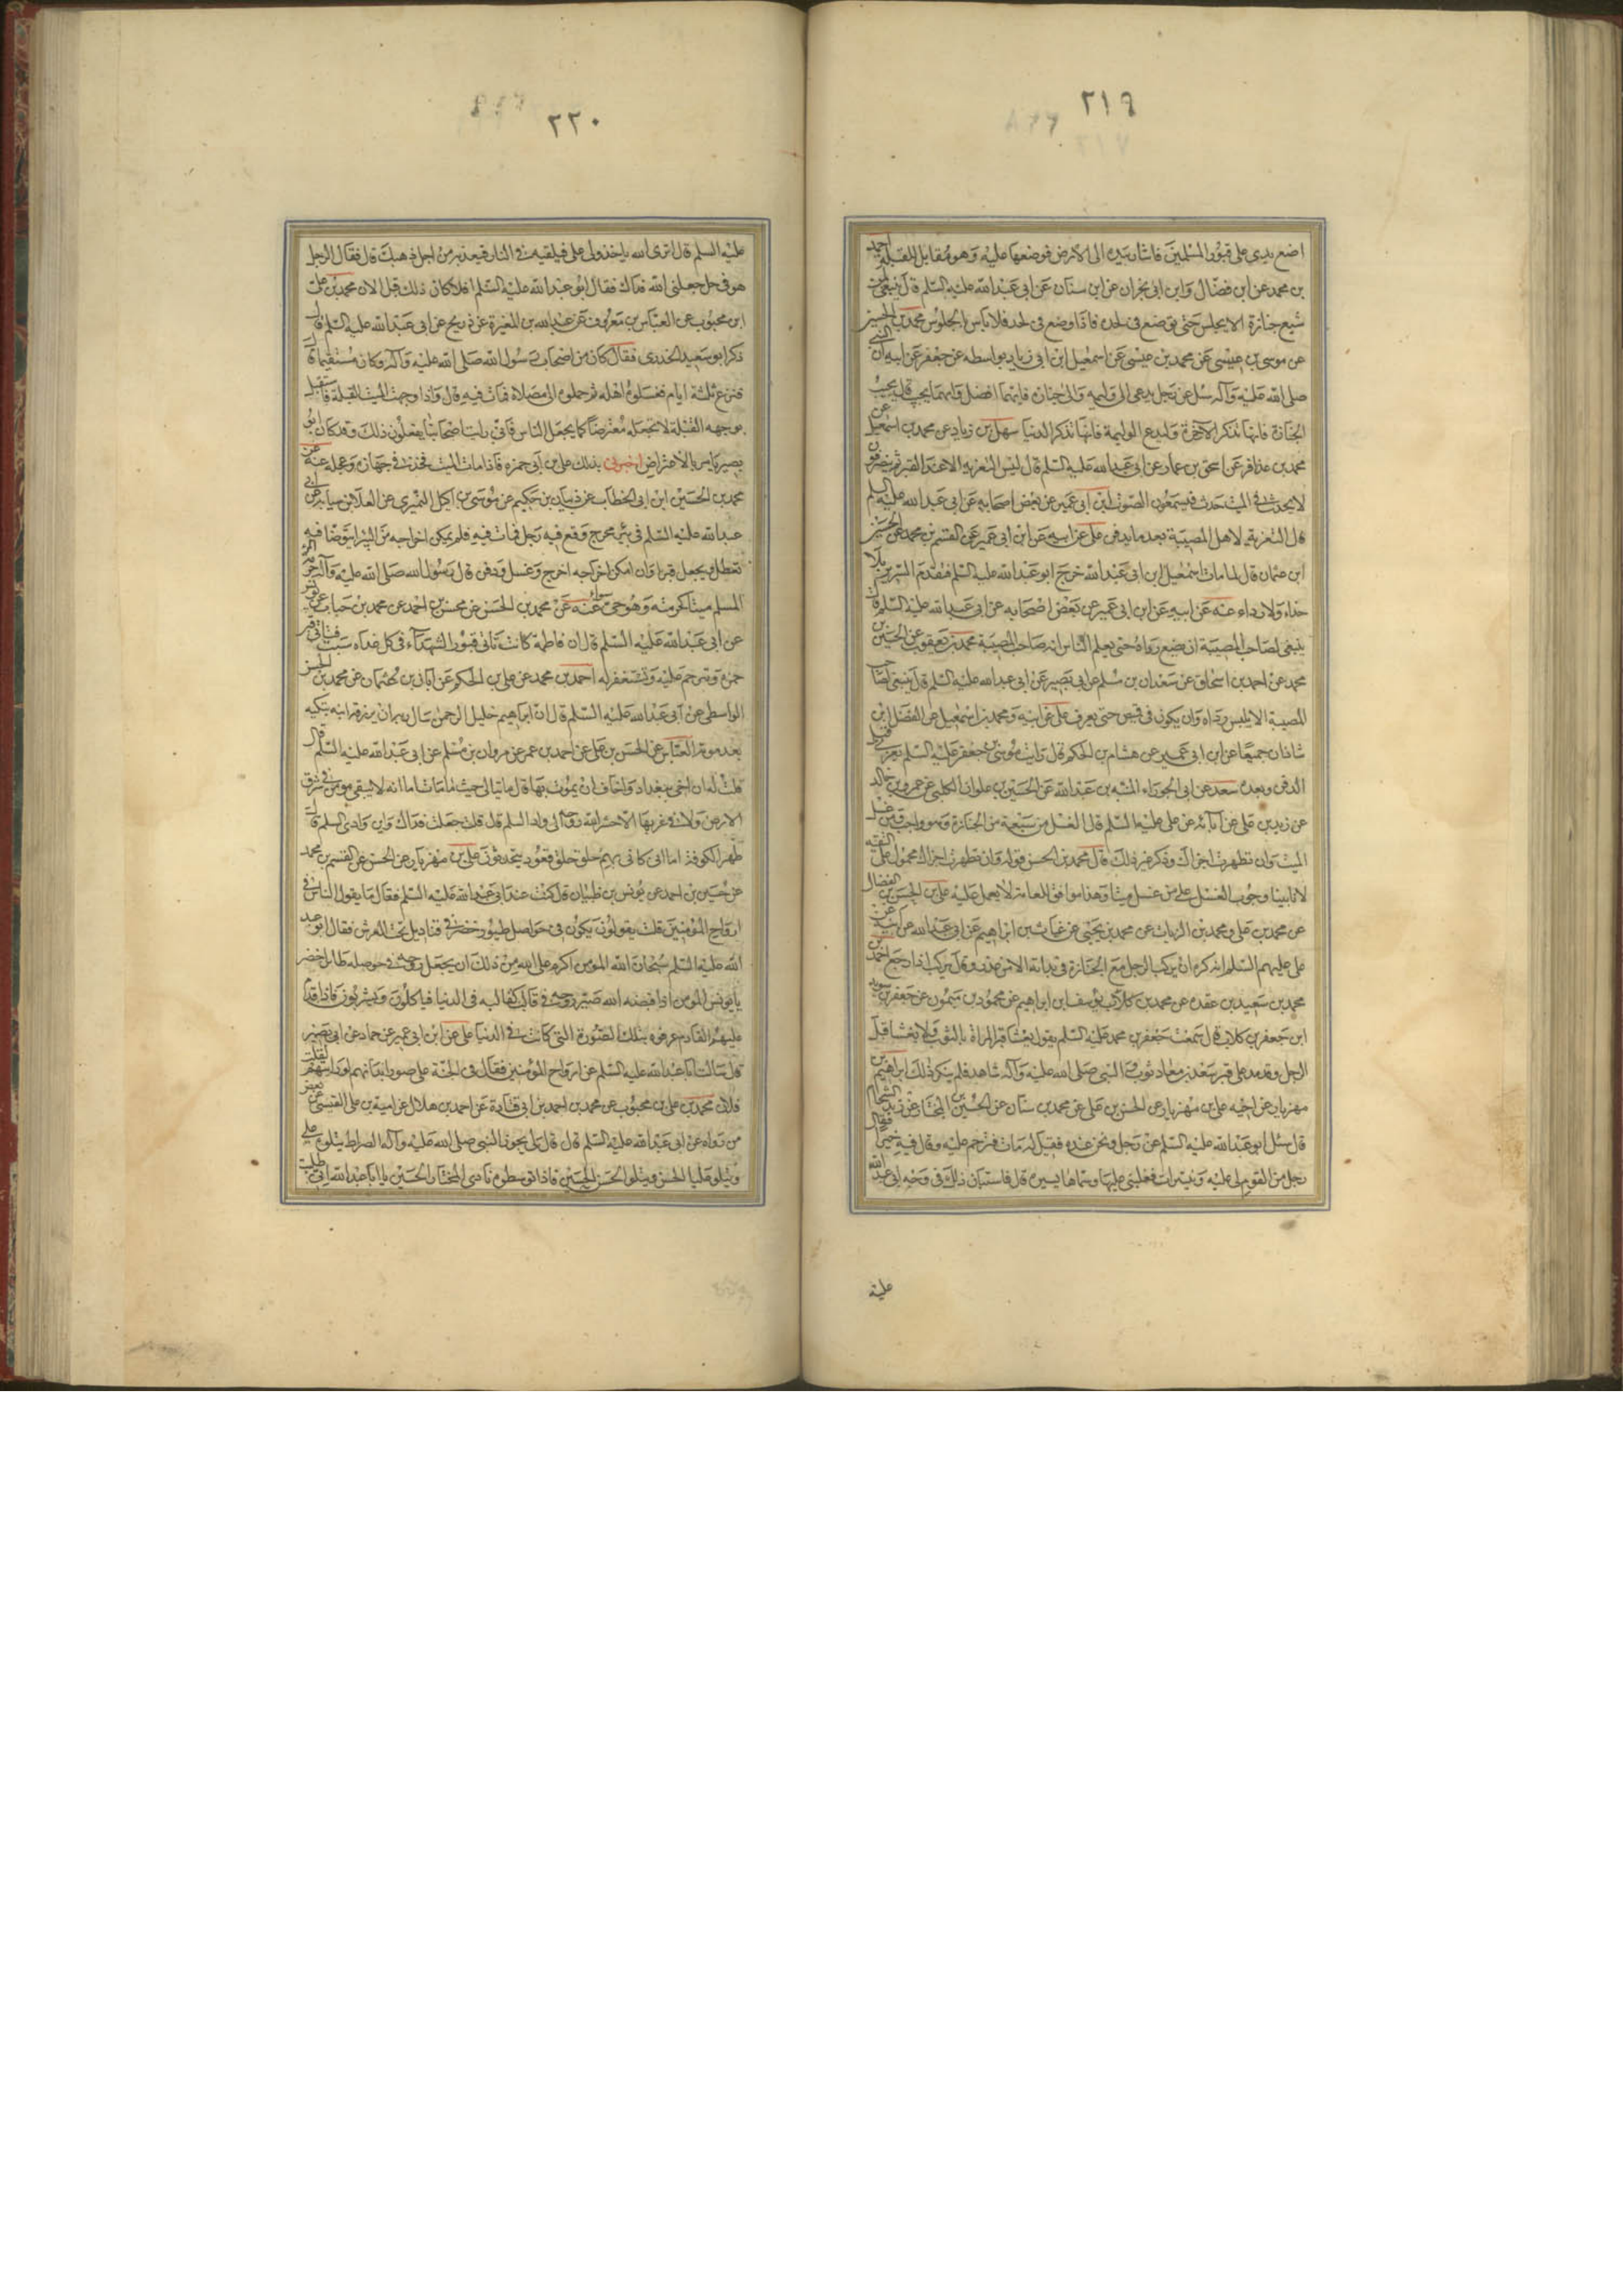 ٢١٩
اضع يدي على قبور المسلمين فاشار بيده الى الارض فوضعها عليه وهو مقابل القبلة احمد
بن محمد عن ابن فضال وابن ابى نجران عن ابن سنان عن ابى عبد الله عليه السلم قال ينبغى لمن
شيع جنازة الا يجلس حتى يوضع فى لحده فاذا وضع فى لحده فلا باس بالجلوس محمد بن الحسين
عن موسى بن عيسى عن محمد بن عيسى عن اسمعيل ابن ابى زياد بواسطه عن جعفر عن ابيه ان النبى
صلى الله عليه وآله سئل عن رجل يدعى الى وليمه والى جنازه فايهما افضل وايهما يجيب قال يجيب
الجنازة فانها تذكر الاخرة وليدع الوليمة فانها تذكر الدنيا سهل بن زياد عن محمد بن اسمعيل عن
محمد بن عذافر عن اسحق بن عمار عن ابى عبد الله عليه السلم قال ليس التعزيه الا عند القبر ثم ينصرفون
لا يحدث فى الميت حدث فيسمعون الصوت ابن ابى عمير عن بعض اصحابه عن ابى عبد الله عليه السلم
قال التعزية لاهل المصيبة بعد ما يدفن على عن ابيه عن ابن ابى عمير عن القسم بن محمد عن الحسين
ابن عثمان قال لما مات اسمعيل ابن ابى عبد الله خرج ابو عبد الله عليه السلم فتقدم السرير بلا
حذاء ولا رداء عنه عن ابيه عن ابن ابى عمير عن بعض اصحابه عن ابى عبد الله عليه السلم قال
ينبغى لصاحب المصيبة ان يضع رداه حتى يعلم الناس انه صاحب المصيبة محمد بن يعقوب عن الحسين بن
محمد عن احمد بن اسحاق عن سعدان بن مسلم عن ابى بصير عن ابى عبد الله عليه السلم قال ينبغى لصاحب
المصيبة الا يلبس رداه وان يكون فى قميص حتى يعرف على عن ابيه ومحمد بن اسمعيل عن الفضل ابن
شاذان جميعا عن ابن ابى عمير عن هشام بن الحكم قال رايت موسى بن جعفر عليه السلم يعزى قبل
الدفن وبعده سعد عن ابى الجوزاء المنبه بن عبد الله عن الحسين بن علوان الكلبى عن عمرو بن خالد
عن زيد بن على عن آبائه عن على عليه السلم قال الغسل من سبعة من الجنازة وهو واجب ومن غسل
الميت وان تطهرت اجزاك وذكر غير ذلك قال محمد بن الحسن قوله وان تطهرت اجزاك محمول على التقيه
لانا بينا وجوب الغسل على من غسل ميتا وهذا موافق للعامة لا يعمل عليه على بن الحسن بن الفضال
عن محمد بن على ومحمد بن الزيات عن محمد بن يحيى عن غياث بن ابراهيم عن ابى عبد الله عن ابيه عن
على عليهم السلم انه كره ان يركب الرجل مع الجنازة فى بداة الا من عذر وقال يركب اذا رجع احمد بن
محمد بن سعيد بن عقده عن محمد بن كلاب يوسف ابن ابراهيم عن محمود بن ميمون عن جعفر بن سويد
ابن جعفر بن كلاب قال سمعت جعفر بن محمد عليه السلم يقول يغشا قبر المراة بالثوب ولا يغشا قبر
الرجل وقد مد على قبر سعد بن معاذ ثوب والنبى صلى الله عليه وآله شاهد فلم ينكر ذلك ابراهيم بن
مهزيار عن اخيه على بن مهزيار عن الحسن بن على عن محمد بن سنان عن الحسين بن المختار عن زيد الشحام
قال سئل ابو عبد الله عليه السلم عن رجل ونحن عنده فقيل له مات فترحم عليه وقال فيه خيرا فقال
رجل من القوم لى عليه دنينيرات فغلبنى عليها وسماها يسيره قال فاستبان ذلك فى وجه ابى عبد الله
عليه
٢٢٠
عليه السلم قال اترى الله ياخذ ولى على فيلقيه فى النار فيعذبه من اجل ذهبك قال فقال الرجل
هو فى حل جعلنى الله فداك فقال ابو عبد الله عليه السلم افلا كان ذلك قبل الان محمد بن على
ابن محبوب عن العباس بن معروف عن عبد الله بن المغيرة عن ذريح عن ابى عبد الله عليه السلم قال
ذكر ابو سعيد الخدرى فقال كان من اصحاب رسول الله صلى الله عليه وآله وكان مستقيما قال
فنزع ثلثة ايام فغسلوه اهله ثم حملوه الى مصلاه فمات فيه قال واذا وجهت الميت القبلة فاستقبل
بوجهه القبلة لا تجعله معترضا كما يجعل الناس فانى رايت اصحابنا يفعلون ذلك وقد كان ابو
بصير يامر بالاعتراض اخبرنى بذلك على بن ابى حمزه فاذا مات الميت فخذ فى جهازه وعجله عنه عن
محمد بن الحسين ابن ابى الخطاب عن ذبيان بن حكيم عن موسى بن اكيل النميرى عن العلا بن سيابه عن ابى
عبد الله عليه السلم فى بئر محرج وقع فيه رجل فمات فيه فلم يمكن اخراجه من البئر ايتوضا فيه
تعطل ويجعل قبرا وان امكن اخراجه اخرج وغسل ودفن قال رسول الله صلى الله عليه وآله حرمة المرء
المسلم ميتا كحرمته وهو حى سواء عنه عن محمد بن الحسن عن محسن بن احمد عن محمد بن حباب عن يونس
عن ابى عبد الله عليه السلم قال ان فاطمة كانت تاتى قبور الشهداء فى كل غداه سبت فتاتى قبر
حمزه وتترحم عليه وتستغفر له احمد بن محمد عن على بن الحكم عن ابان بن عثمان عن محمد بن الحسن
الواسطى عن ابى عبد الله عليه السلم قال ان ابراهيم خليل الرحمن سال ربه ان يرزقه ابنة تبكيه
بعد موته العباس عن الحسن بن على عن احمد بن عمر عن مروان بن مسلم عن ابى عبد الله عليه السلم قال
قلت له ان اخى ببغداد واخاف ان يموت بها قال ما تبالى حيث ما مات اما انه لا يبقى مومن فى شرق
الارض ولا فى غربها الا حشر الله روحه الى وادى السلم قال قلت جعلت فداك واين وادى السلم قال
ظهر الكوفة اما انى كانى بهم حلق حلق قعود يتحدثون على بن مهزيار عن الحسن عن القسم بن محمد
عن حسين بن احمد عن يونس بن ظبيان قال كنت عند ابى عبد الله عليه السلم فقال ما يقول الناس فى
ارواح المومنين قلت يقولون يكون فى حواصل طيور خضر فى قناديل تحت العرش فقال ابو عبد
الله عليه السلم سبحان الله المومن اكرم على الله من ذلك ان يجعل روحه فى حوصله طائر اخضر
يا يونس المومن اذا قبضه الله صير روحه فى قالب كقالبه فى الدنيا فياكلون ويشربون فاذا قدم
عليهم القادم عرفوه بتلك الصورة التى كانت فى الدنيا على عن ابن ابى عمير عن حماد عن ابى بصير
قال سالت ابا عبد الله عليه السلم عن ارواح المؤمنين فقال فى الجنة على صور ابدانهم لو رايته لقلت
فلان محمد بن على بن محبوب عن محمد بن احمد بن ابى قتادة عن احمد بن هلال عن امية بن على القيسى عن بعض
من رواه عن ابى عبد الله عليه السلم قال قال لى يجوز النبى صلى الله عليه وآله الصراط يتلوه على
ويتلو عليا الحسن ويتلو الحسن الحسين فاذا توسطوه نادى المختار الحسين يا ابا عبد الله انى طلبت